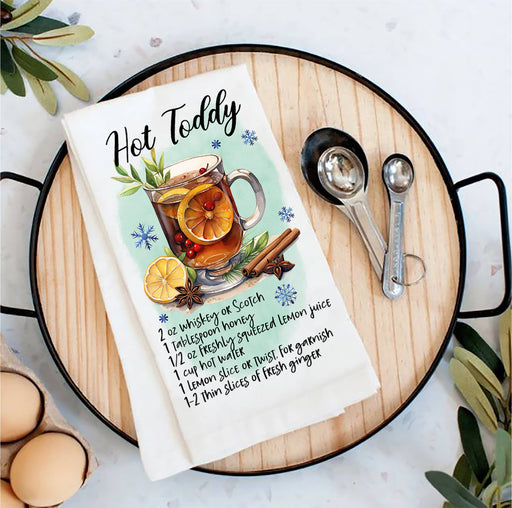 Hot Toddy
2 oz whiskey or Scotch
1 Tablespoon honey
1/2 oz freshly squeezed lemon juice
1 cup hot water
1 Lemon slice or twist, for garnish
1-2 thin slices of fresh ginger